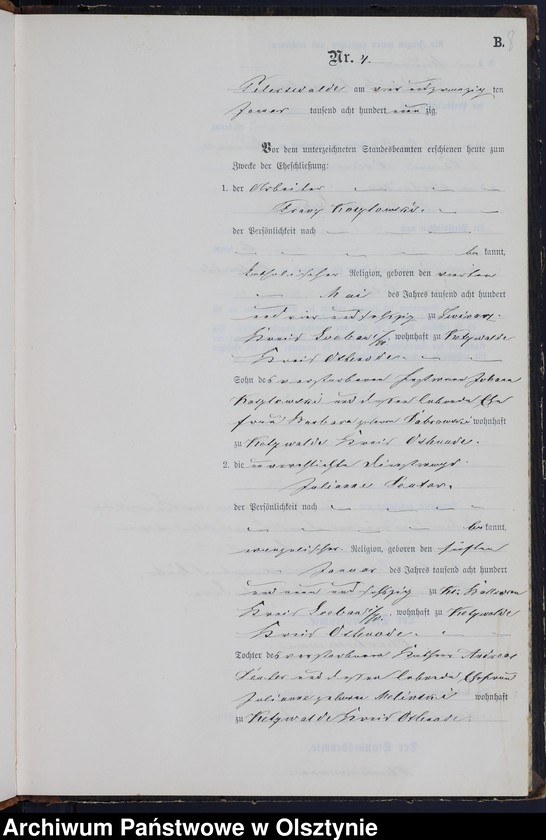 B.
8
Nr. 4.
Peterswalde am vier und zwanzig ten
Januar tausend acht hundert neun zig.
Vor dem unterzeichneten Standesbeamten erschienen heute zum
Zwecke der Eheschließung:
1. der Arbeiter
Franz Kozlowski.
der Persönlichkeit nach
be kannt,
katholischer Religion, geboren den vierten
Mai des Jahres tausend acht hundert
und vier und sechszig zu
Kreis Loebau wohnhaft zu
Kreis Osterode.
Sohn des verstorbenen Johann
Kozlowski und dessen lebende Ehe
frau Barbara geborne wohnhaft
zu Kreis Osterode.
2. die unverehelichte Dienstmagd
Julianne
der Persönlichkeit nach
be kannt,
evangelischer Religion, geboren den fünften
Januar des Jahres tausend acht hundert
und neun und sechszig zu Kl.
Kreis Loebau wohnhaft zu
Kreis Osterode.
Tochter des verstorbenen Andreas
und dessen lebende Ehefrau
Julianne geborne wohnhaft
zu Kreis Osterode.
Archiwum Państwowe w Olsztynie